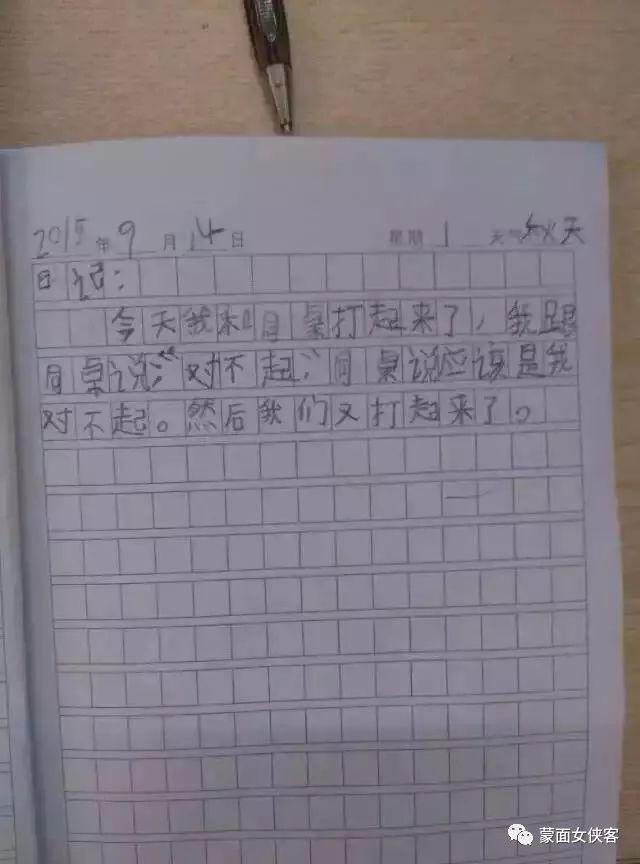 2015年9月14日 星期1 天气秋天
日记:
今天我和同桌打起来了,我跟
同桌说:“对不起”,同桌说应该是我
对不起。然后我们又打起来了。
蒙面女侠客